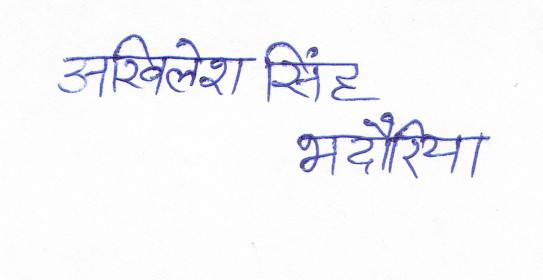 अखिलेश सिंह
भदौरिया